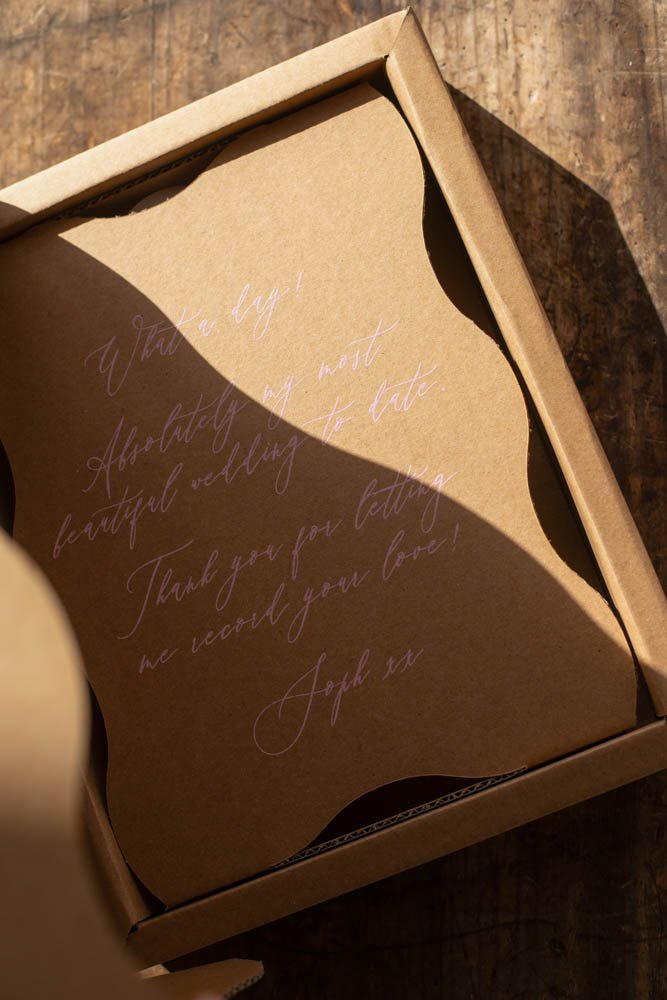 What a day!
Absolutely my most
beautiful wedding to date.
Thank you for letting
me record your love!
Soph xx